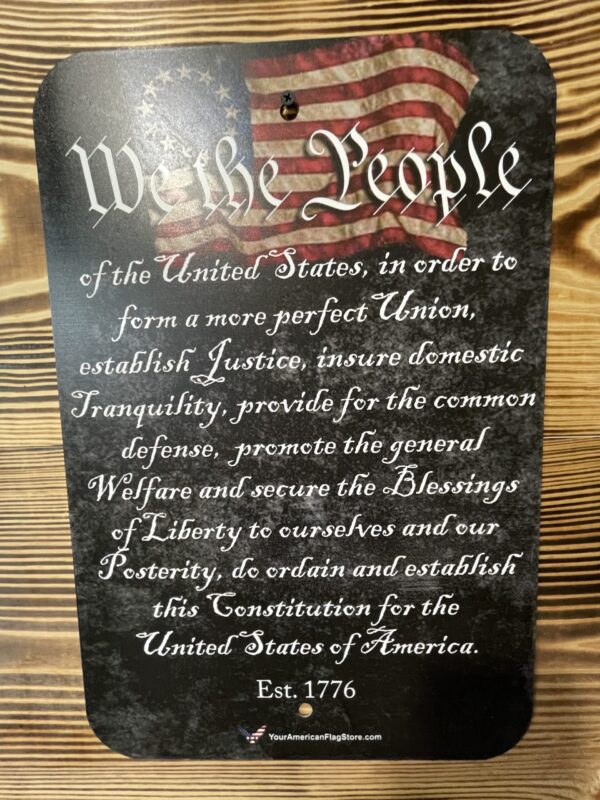 We the People
of the United States, in order to
form a more perfect Union,
establish Justice, insure domestic
Tranquility, provide for the common
defense, promote the general
Welfare and secure the Blessings
of Liberty to ourselves and our
Posterity, do ordain and establish
this Constitution for the
United States of America.
Est. 1776
YourAmericanFlagStore.com